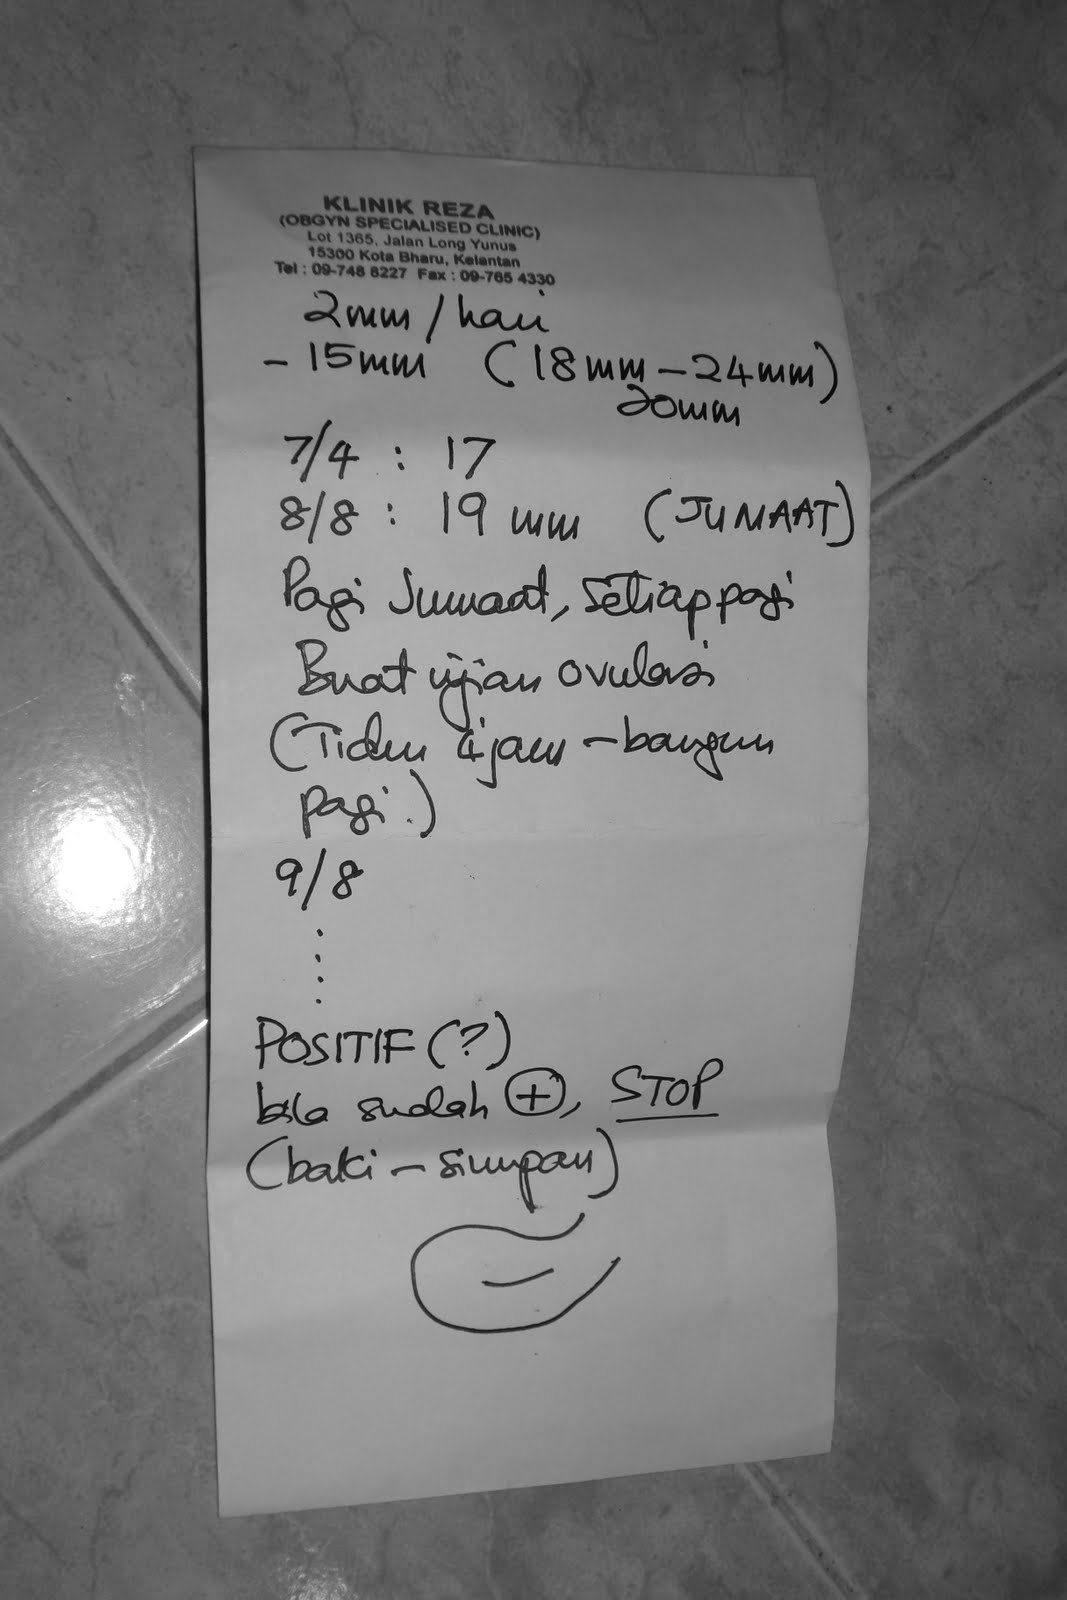 KLINIK REZA
(OBGYN SPECIALISED CLINIC)
Lot 1365, Jalan Long Yunus
15300 Kota Bharu, Kelantan
Tel : 09-748 8227 Fax : 09-765 4330
2mm/hari
- 15mm (18mm - 24mm)
20mm
7/4 : 17
8/8 : 19 mm (JUMAAT)
Pagi Jumaat, setiap pagi
Buat ujian ovulasi
(Tidur 4jam - bangun
pagi.)
9/8
POSITIF (?)
bila sudah +, STOP
(baki - simpan)